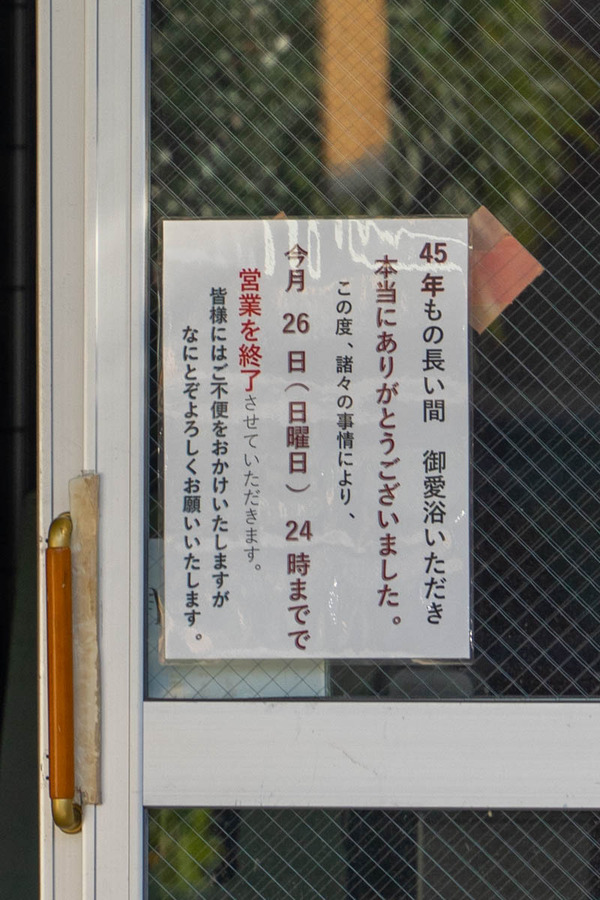 45年もの長い間　御愛浴いただき
本当にありがとうございました。
この度、諸々の事情により、
今月 26 日（日曜日） 24 時までで
営業を終了させていただきます。
皆様にはご不便をおかけいたしますが
なにとぞよろしくお願いいたします。